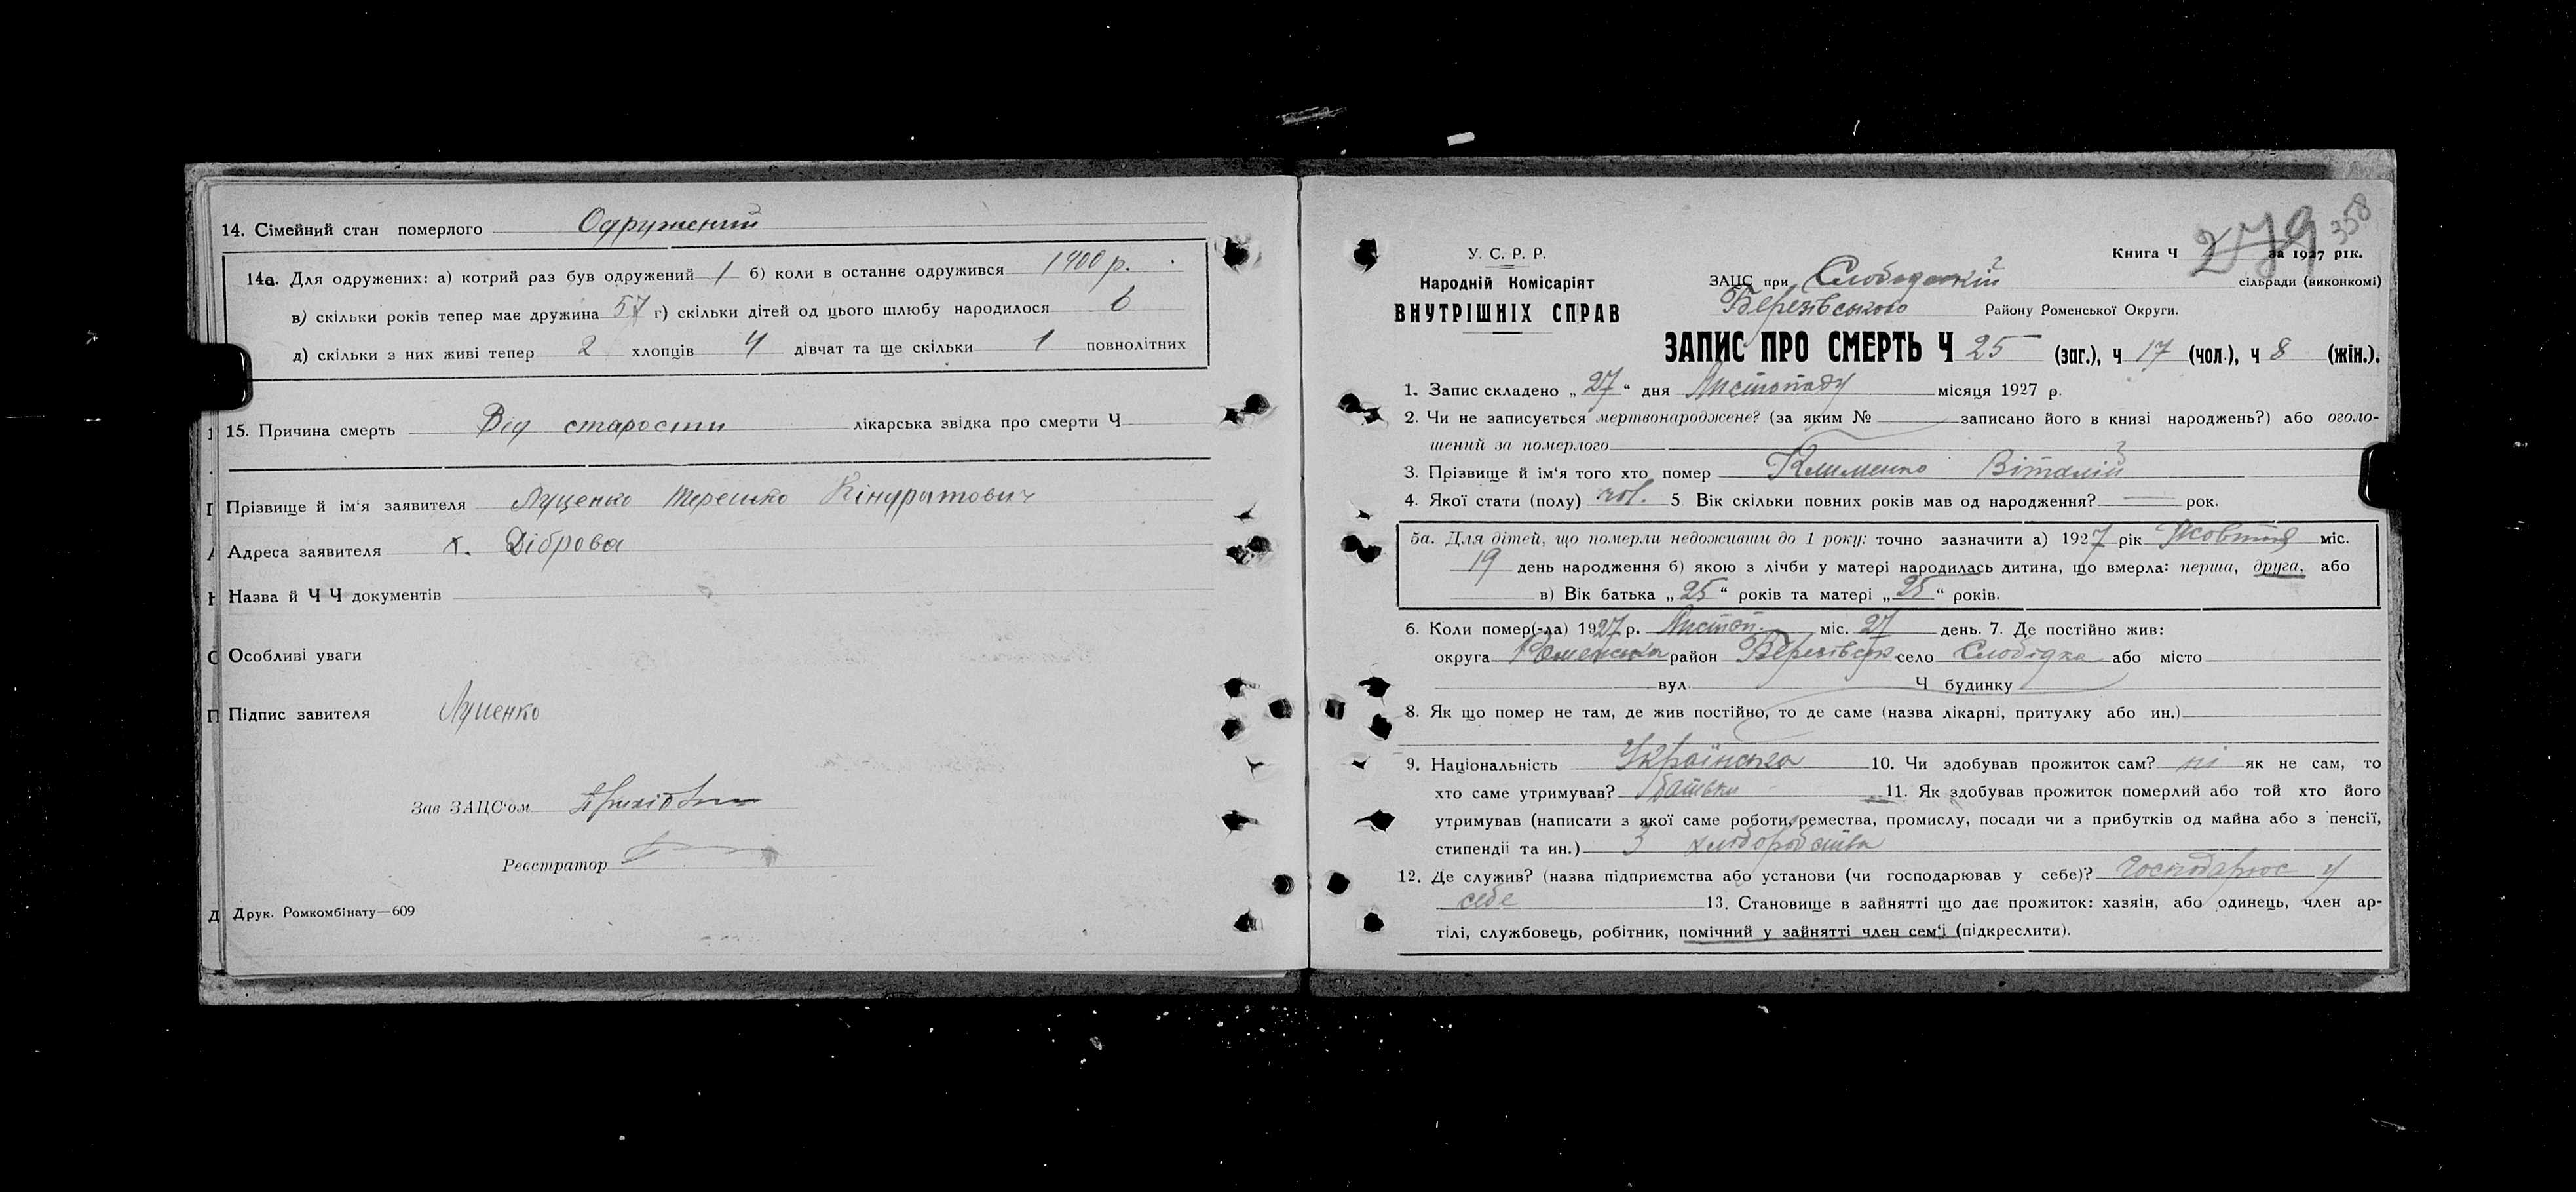 14. Сімейний стан померлого Одружений
14а. Для одружених: а) котрий раз був одружений 1 б) коли в останнє одружився 1900 р.
в) скільки років тепер має дружина 57 г) скільки дітей од цього шлюбу народилося 6
д) скільки з них живі тепер 2 хлопців 4 дівчат та ще скільки 1 повнолітних
15. Причина смерть Від старости лікарська звідка про смерти Ч
Прізвище й ім'я заявителя Луценко Терешко Кіндратович
Адреса заявителя х. Діброва
Назва й Ч Ч документів
Особливі уваги
Підпис завителя Луценко
Зав ЗАЦС'ом
Реєстратор
Друк. Ромкомбінату—609
279 358
У. С. Р. Р.
Народній Комісаріят
ВНУТРІШНІХ СПРАВ
Книга Ч за 1927 рік.
ЗАЦС при Слобідській сільради (виконкомі)
Березівського Району Роменської Округи.
ЗАПИС ПРО СМЕРТЬ Ч 25 (заг.), ч 17 (чол.), ч 8 (жін.).
1. Запис складено „27“ дня Листопаду місяця 1927 р.
2. Чи не записується мертвонароджене? (за яким № записано його в книзі народжень?) або оголо-
шений за померлого
3. Прізвище й ім'я того хто помер Клименко Віталій
4. Якої стати (полу) чол. 5 Вік скільки повних років мав од народження? — рок.
5а. Для дітей, що померли недоживши до 1 року: точно зазначити а) 1927 рік Жовтня міс.
19 день народження б) якою з лічби у матері народилась дитина, що вмерла: перша, друга, або
в) Вік батька „25“ років та матері „25“ років.
6. Коли помер(-ла) 1927 р. Листоп. міс. 27 день. 7. Де постійно жив:
округа Роменська район Березівськ. село Слобідка або місто
вул. Ч будинку
8. Як що помер не там, де жив постійно, то де саме (назва лікарні, притулку або ин.)
9. Національність Українська 10. Чи здобував прожиток сам? ні як не сам, то
хто саме утримував? батьки 11. Як здобував прожиток померлий або той хто його
утримував (написати з якої саме роботи, ремества, промислу, посади чи з прибутків од майна або з пенсії,
стипендіі та ин.) З хліборобства
12. Де служив? (назва підприємства або установи (чи господарював у себе)? господарює у
себе 13. Становище в зайнятті що дає прожиток: хазяін, або одинець, член ар-
тілі, службовець, робітник, помічний у зайнятті член сем'ї (підкреслити).